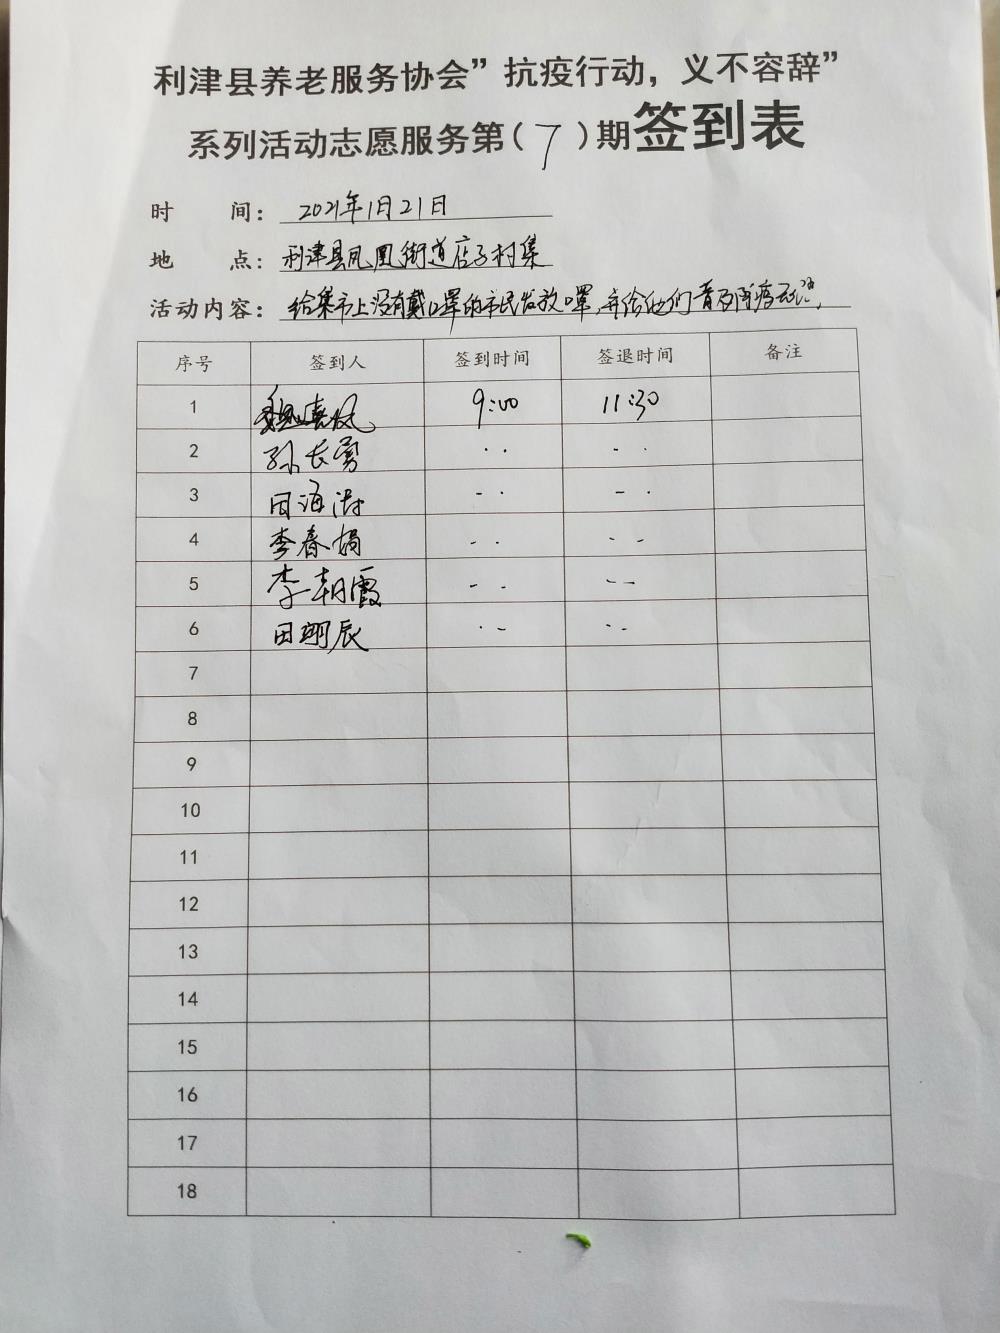 利津县养老服务协会”抗疫行动，义不容辞”
系列活动志愿服务第（7）期签到表
时 间：2021年1月21日
地 点：利津县凤凰街道店子村集
活动内容：给集市上没有戴口罩的市民发放口罩，并给他们普及防疫
序号 签到人 签到时间 签退时间 备注
1 9:00 11:30
2 孙长勇 · · - ·
3 田海涛 - · - ·
4 李春娟 - · · -
5 李朝霞 - · - -
6 田翔辰 · - · -
7
8
9
10
11
12
13
14
15
16
17
18